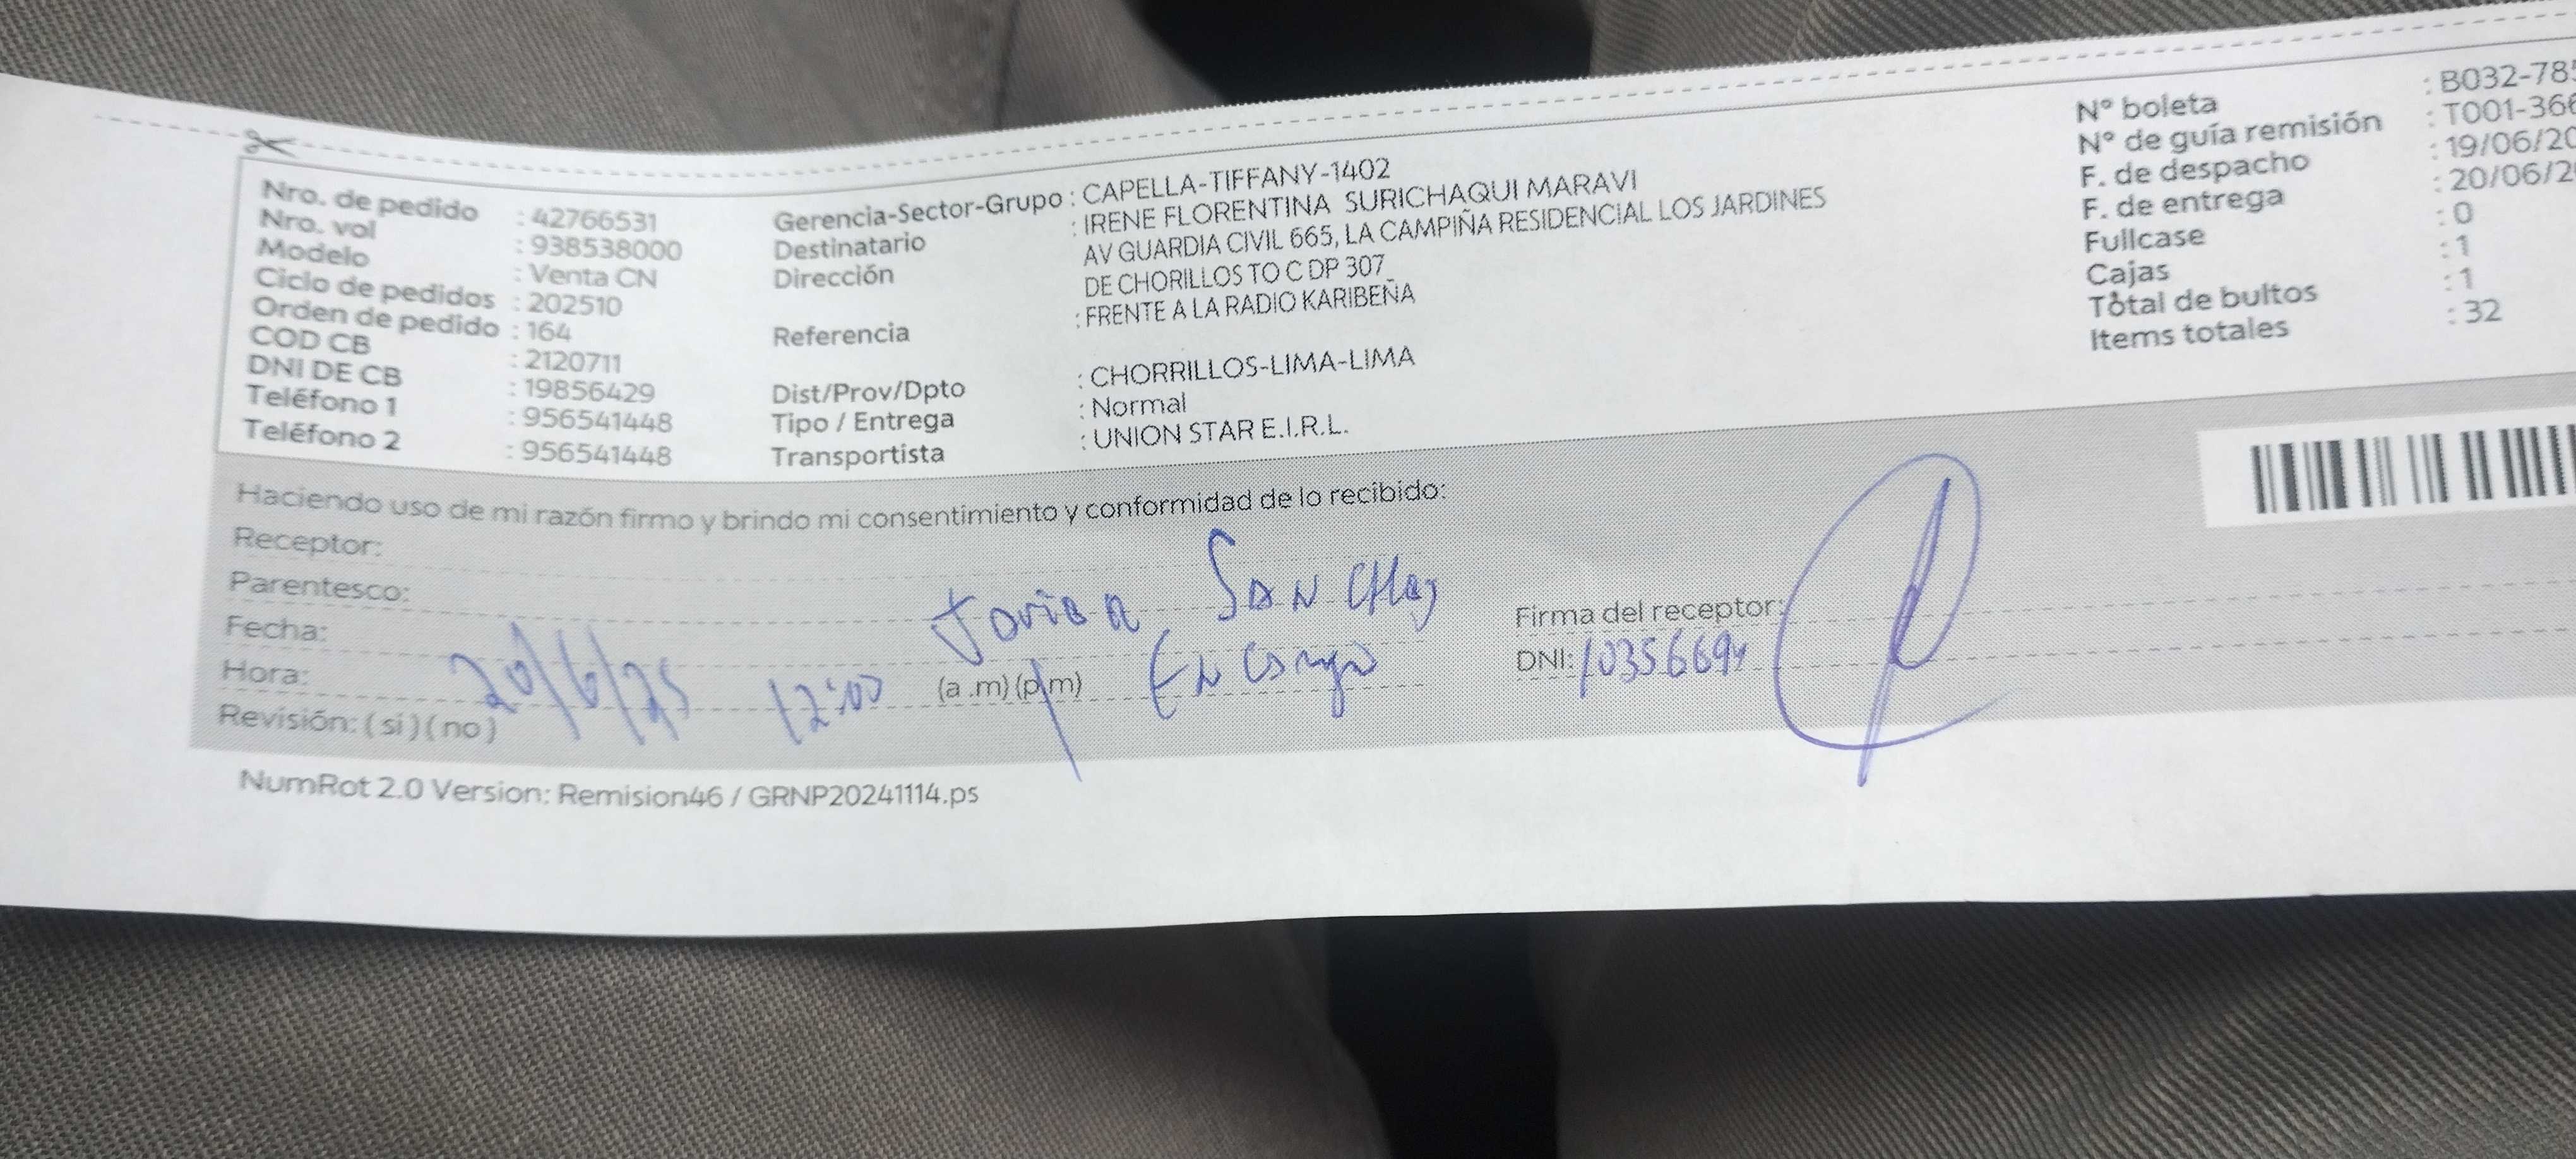 Nro. de pedido : 42766531
Nro. vol : 938538000
Modelo : Venta CN
Ciclo de pedidos : 202510
Orden de pedido : 164
COD CB : 2120711
DNI DE CB : 19856429
Teléfono 1 : 956541448
Teléfono 2 : 956541448
Gerencia-Sector-Grupo : CAPELLA-TIFFANY-1402
Destinatario : IRENE FLORENTINA SURICHAQUI MARAVI
Dirección AV GUARDIA CIVIL 665, LA CAMPIÑA RESIDENCIAL LOS JARDINES
DE CHORILLOS TO C DP 307
Referencia : FRENTE A LA RADIO KARIBEÑA
Dist/Prov/Dpto : CHORRILLOS-LIMA-LIMA
Tipo / Entrega : Normal
Transportista : UNION STAR E.I.R.L.
N° boleta : B032-78
N° de guía remisión : T001-366
F. de despacho : 19/06/20
F. de entrega : 20/06/2
Fullcase : 0
Cajas : 1
Total de bultos : 1
Items totales : 32
Haciendo uso de mi razón firmo y brindo mi consentimiento y conformidad de lo recibido:
Receptor:
Parentesco: SAN
Fecha: 20/6/25
Hora: 12:00 (a .m) (p.m)
Revisión: ( si ) ( no )
Firma del receptor:
DNI: 10356694
NumRot 2.0 Version: Remision46 / GRNP20241114.ps